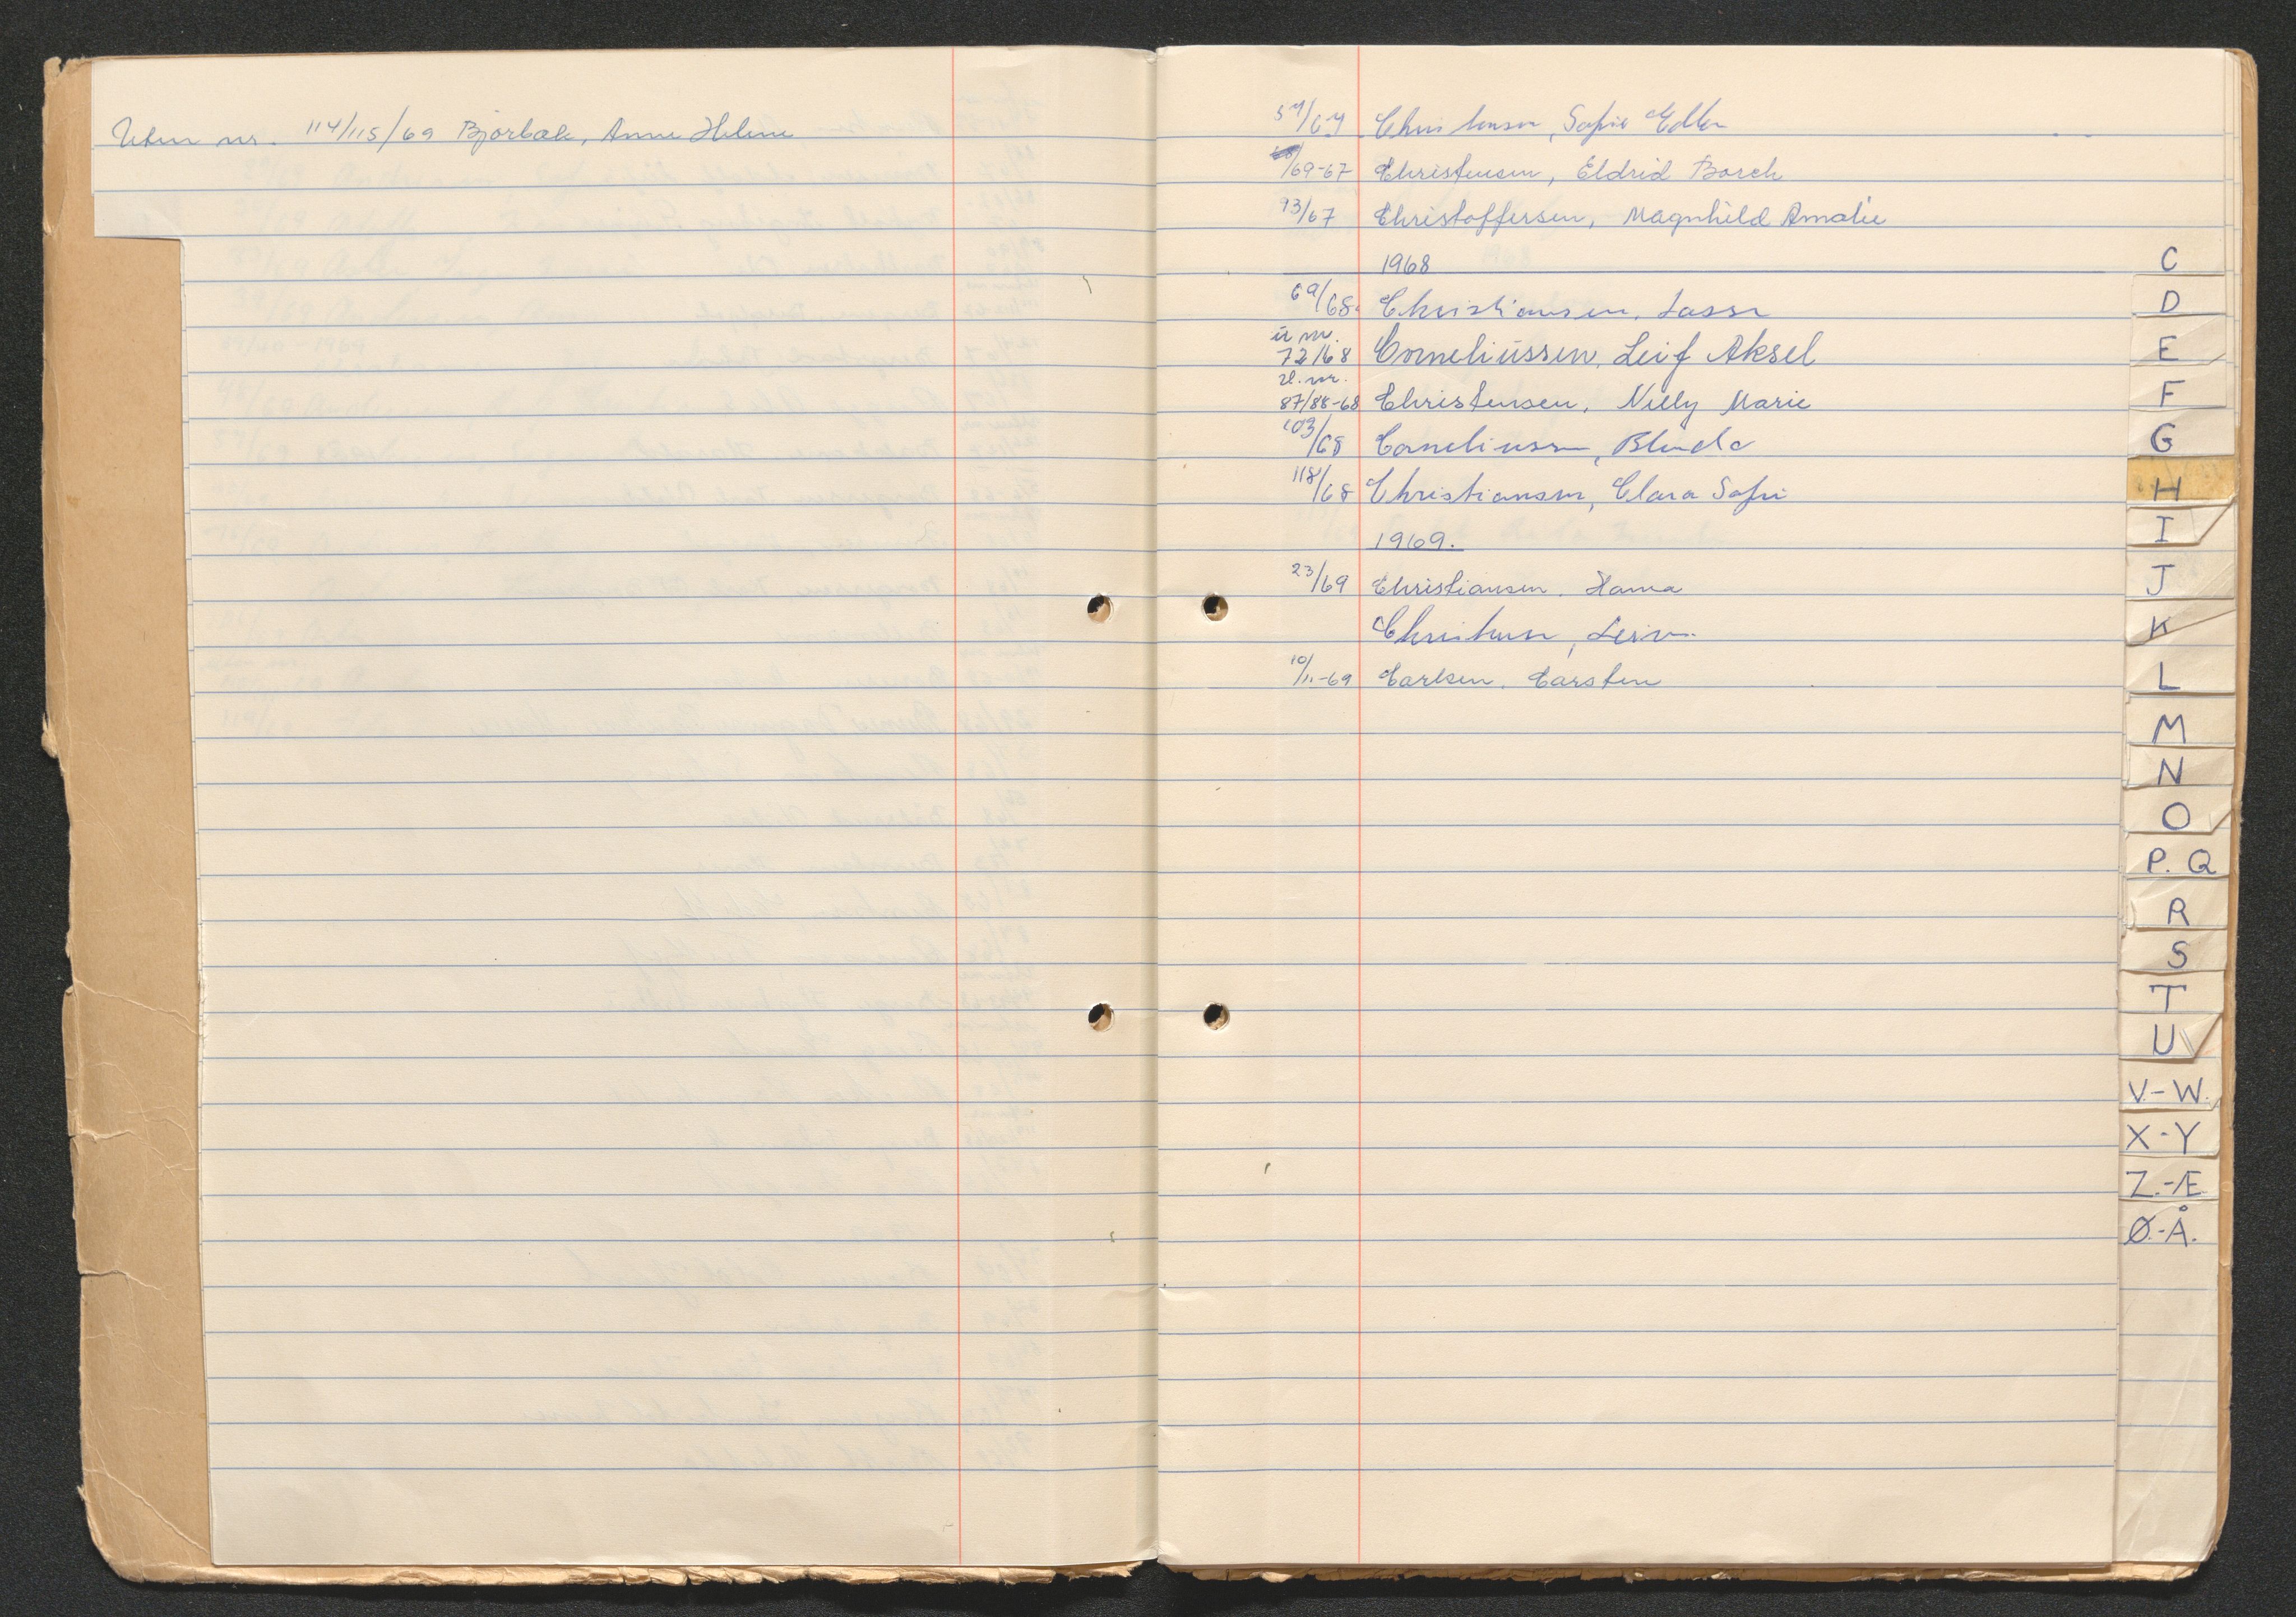 Uten nr. 114/115/69 Bjørbæk, Anne Helene
57/67 Christensen, Sofie
/69-67 Christensen, Eldrid Borch
93/67 Christoffersen, Magnhild Amalie
1968
69/68 Christiansen, Lasse
u nr.
72/68 Corneliussen, Leif Aksel
u. nr.
87/88-68 Christensen, Nelly Marie
103/68 Corneliussen,
118/68 Christiansen, Clara Sofie
1969.
23/69 Christiansen, Hanna
Christensen,
10/11-69 Carlsen, Carsten
C
D
E
F
G
H
I
J
K
L
M
N
O
P. Q
R
S
T
U
V.-W.
X-Y
Z.-Æ
Ø.-Å.